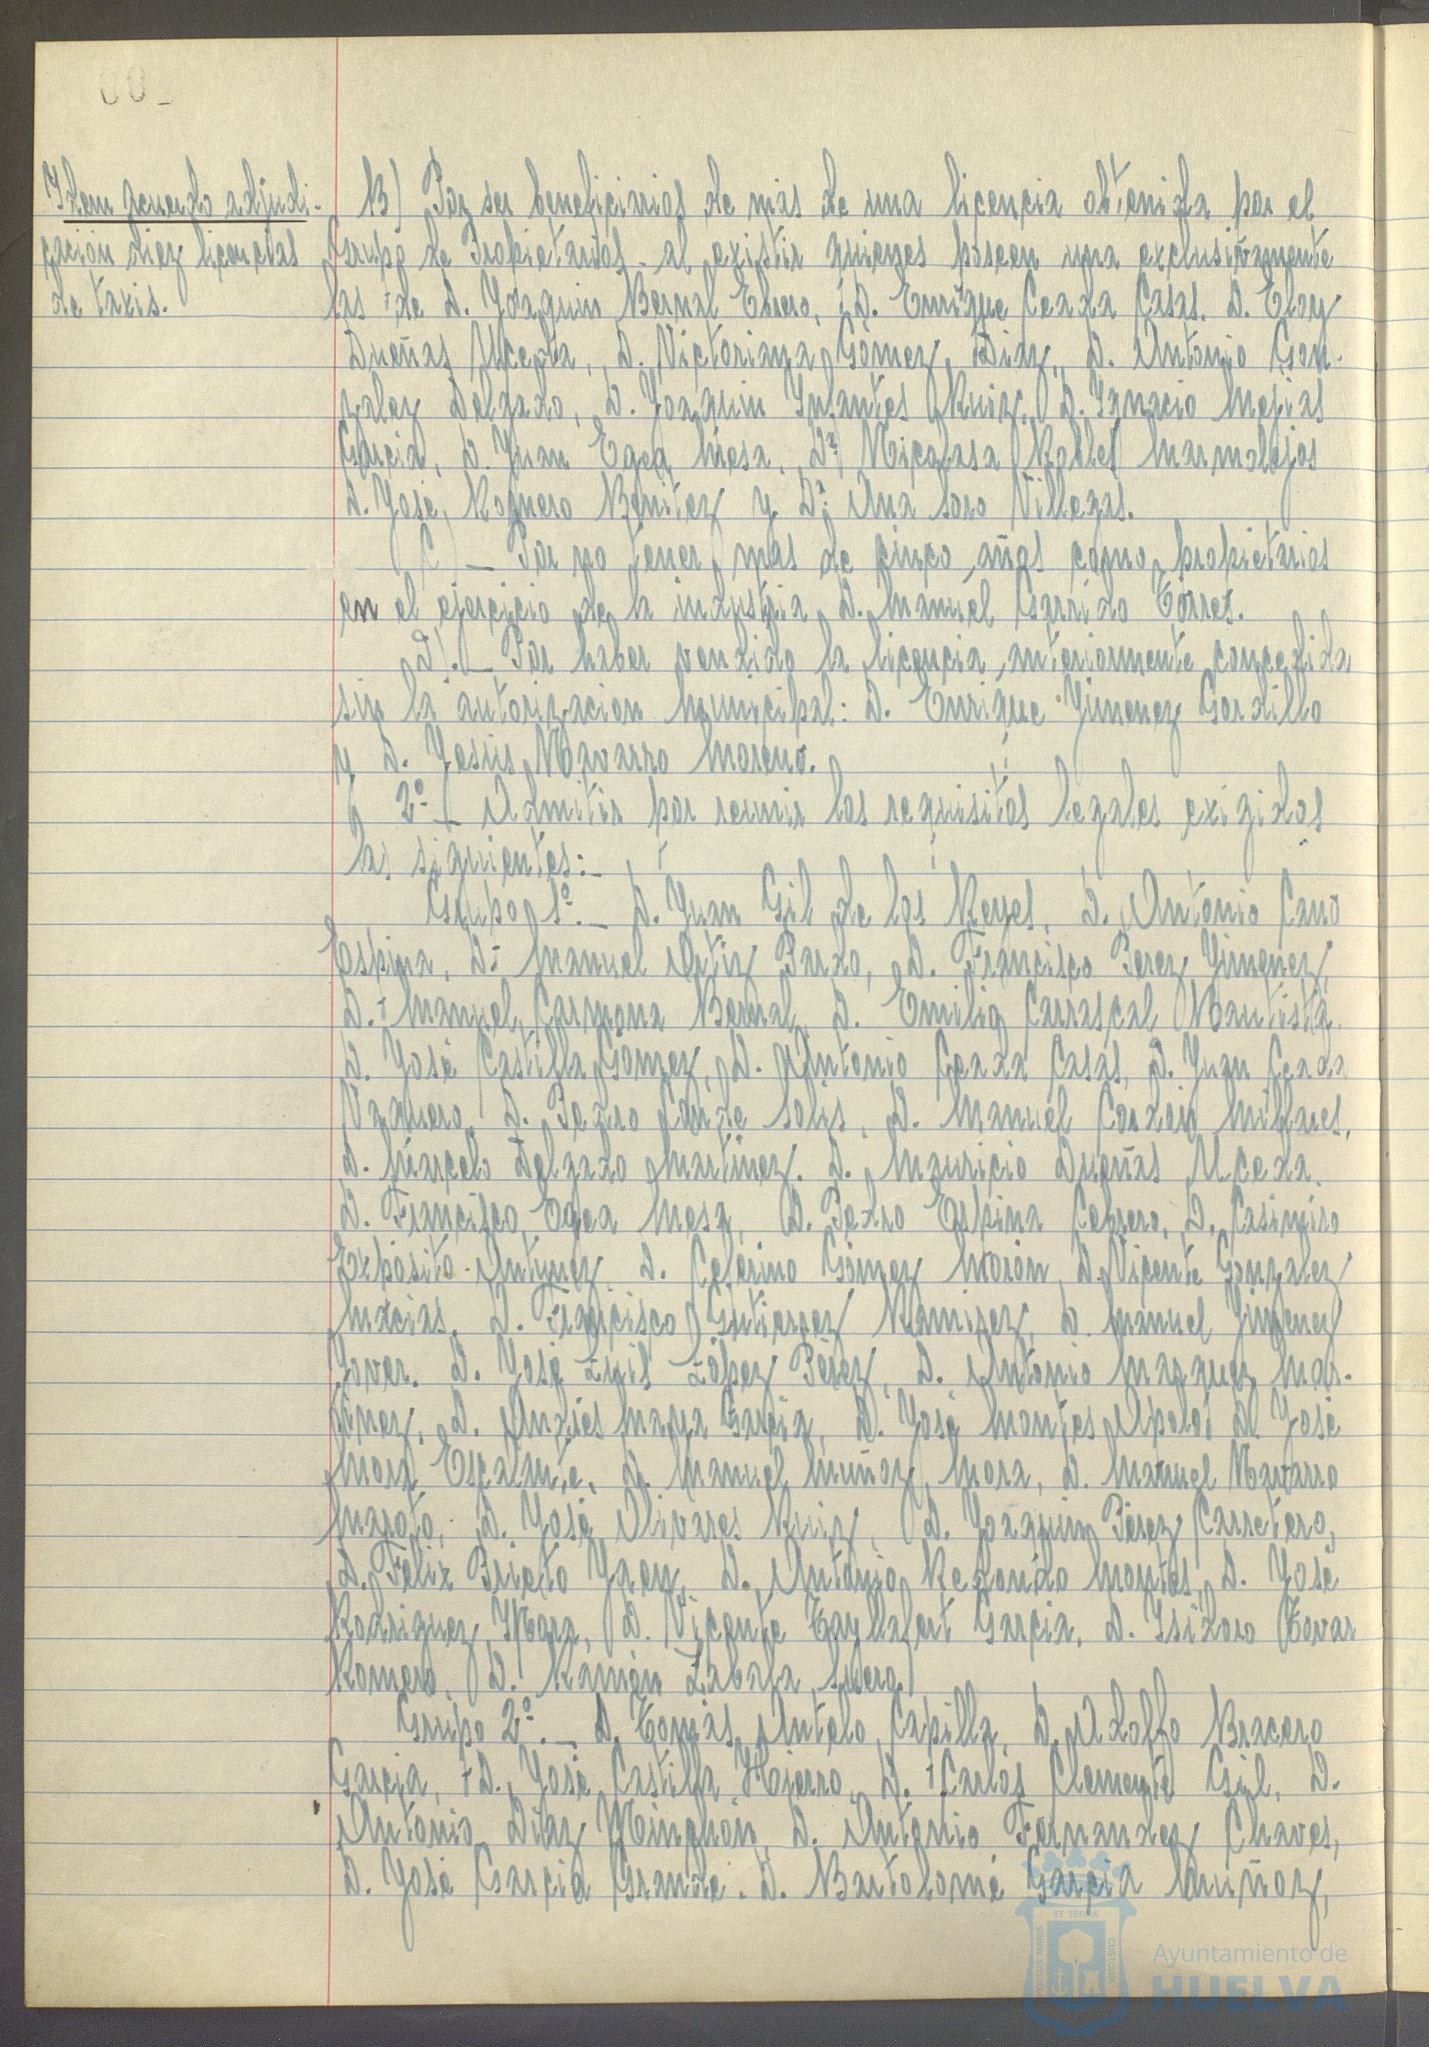 Idem acuerdo adjudi-
cación diez licencias
de taxis.
B) Por ser beneficiarios de más de una licencia obtenida por el
Grupo de Propietarios - al existir quienes poseen una exclusivamente
las de D. Joaquin Bernal Ebrero, D. Enrique Ceada Casas. D. Eloy
Dueñas Uceda, D. Victoriana Gómez Diaz, D. Antonio Gon-
zalez Delgado, D. Joaquin Infantes Ruiz, D. Ignacio Mejias
Garcia, D. Juan Egea Mesa, Dª Nicolasa Robles Marmolejos
D. José Romero Benitez y Dª Ana Soro Villegas.
C) - Por no tener más de cinco años como propietarios
en el ejercicio de la industria D. Manuel Garrido Torres.
D).- Por haber vendido la licencia anteriormente concedida
sin la autorizacion Municipal: D. Enrique Jimenez Gordillo
y D. Jesus Navarro Moreno.
2º- Admitir por reunir los requisitos legales exigidos
las siguientes:-
Grupo 1º.- D. Juan Gil de los Reyes, D. Antonio Cano
Espina, D. Manuel Ortiz Pardo, D. Francisco Perez Jimenez,
D. Manuel Carmona Bernal, D. Emilio Carrascal Bautista,
D. José Castilla Gómez, D. Antonio Ceada Casas, D. Juan Ceada
Vaquero, D. Pedro Conde Solis, D. Manuel Cordón Millares,
D. Marcelo Delgado Martinez. D. Mauricio Dueñas Uceda.
D. Francisco Egea Mesa, D. Pedro Espina Cebrero, D. Casimiro
Expósito Antunez, D. Ceferino Gómez Morón, D. Vicente Gonzalez
Macias, D. Francisco Gutierrez Ramirez, D. Manuel Jimenez
Jover. D. José Luis López Pérez, D. Antonio Marquez Mar-
tinez, D. Andres Maya Garcia, D. José Montes Apolo, D. José
Mora Escalante, D. Manuel Muñoz Mora, D. Manuel Navarro
Maroto, D. José Olivares Ruiz, D. Joaquin Pérez Carretero,
D. Felix Prieto Jaen, D. Antonio Redondo Montes, D. José
Rodriguez Mora, D. Vicente Tayllafert Garcia, D. Isidoro Tovar
Romero, D. Ramón Zabala Suero.
Grupo 2º.- D. Tomás Antelo Capilla, D. Adolfo Bracero
Garcia, D. José Castilla Hierro, D. Carlos Clemente Gil, D.
Antonio Diaz Minchón, D. Antonio Fernandez Chaves,
D. José Garcia Grande. D. Bartolomé Garcia Muñoz,
PORTUS MARIS ET TERRAE CUSTODIA
Ayuntamiento de
HUELVA